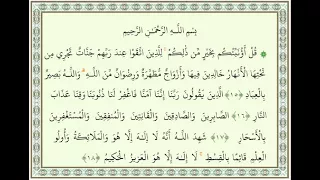 بِسْمِ اللَّـهِ الرَّحْمَـٰنِ الرَّحِيمِ
قُلْ أَؤُنَبِّئُكُم بِخَيْرٍ مِّن ذَٰلِكُمْ ۚ لِلَّذِينَ اتَّقَوْا عِندَ رَبِّهِمْ جَنَّاتٌ تَجْرِي مِن
تَحْتِهَا الْأَنْهَارُ خَالِدِينَ فِيهَا وَأَزْوَاجٌ مُّطَهَّرَةٌ وَرِضْوَانٌ مِّنَ اللَّـهِ ۗ وَاللَّـهُ بَصِيرٌ
بِالْعِبَادِ ﴿١٥﴾ الَّذِينَ يَقُولُونَ رَبَّنَا إِنَّنَا آمَنَّا فَاغْفِرْ لَنَا ذُنُوبَنَا وَقِنَا عَذَابَ
النَّارِ ﴿١٦﴾ الصَّابِرِينَ وَالصَّادِقِينَ وَالْقَانِتِينَ وَالْمُنفِقِينَ وَالْمُسْتَغْفِرِينَ
بِالْأَسْحَارِ ﴿١٧﴾ شَهِدَ اللَّـهُ أَنَّهُ لَا إِلَـٰهَ إِلَّا هُوَ وَالْمَلَائِكَةُ وَأُولُو
الْعِلْمِ قَائِمًا بِالْقِسْطِ ۚ لَا إِلَـٰهَ إِلَّا هُوَ الْعَزِيزُ الْحَكِيمُ ﴿١٨﴾